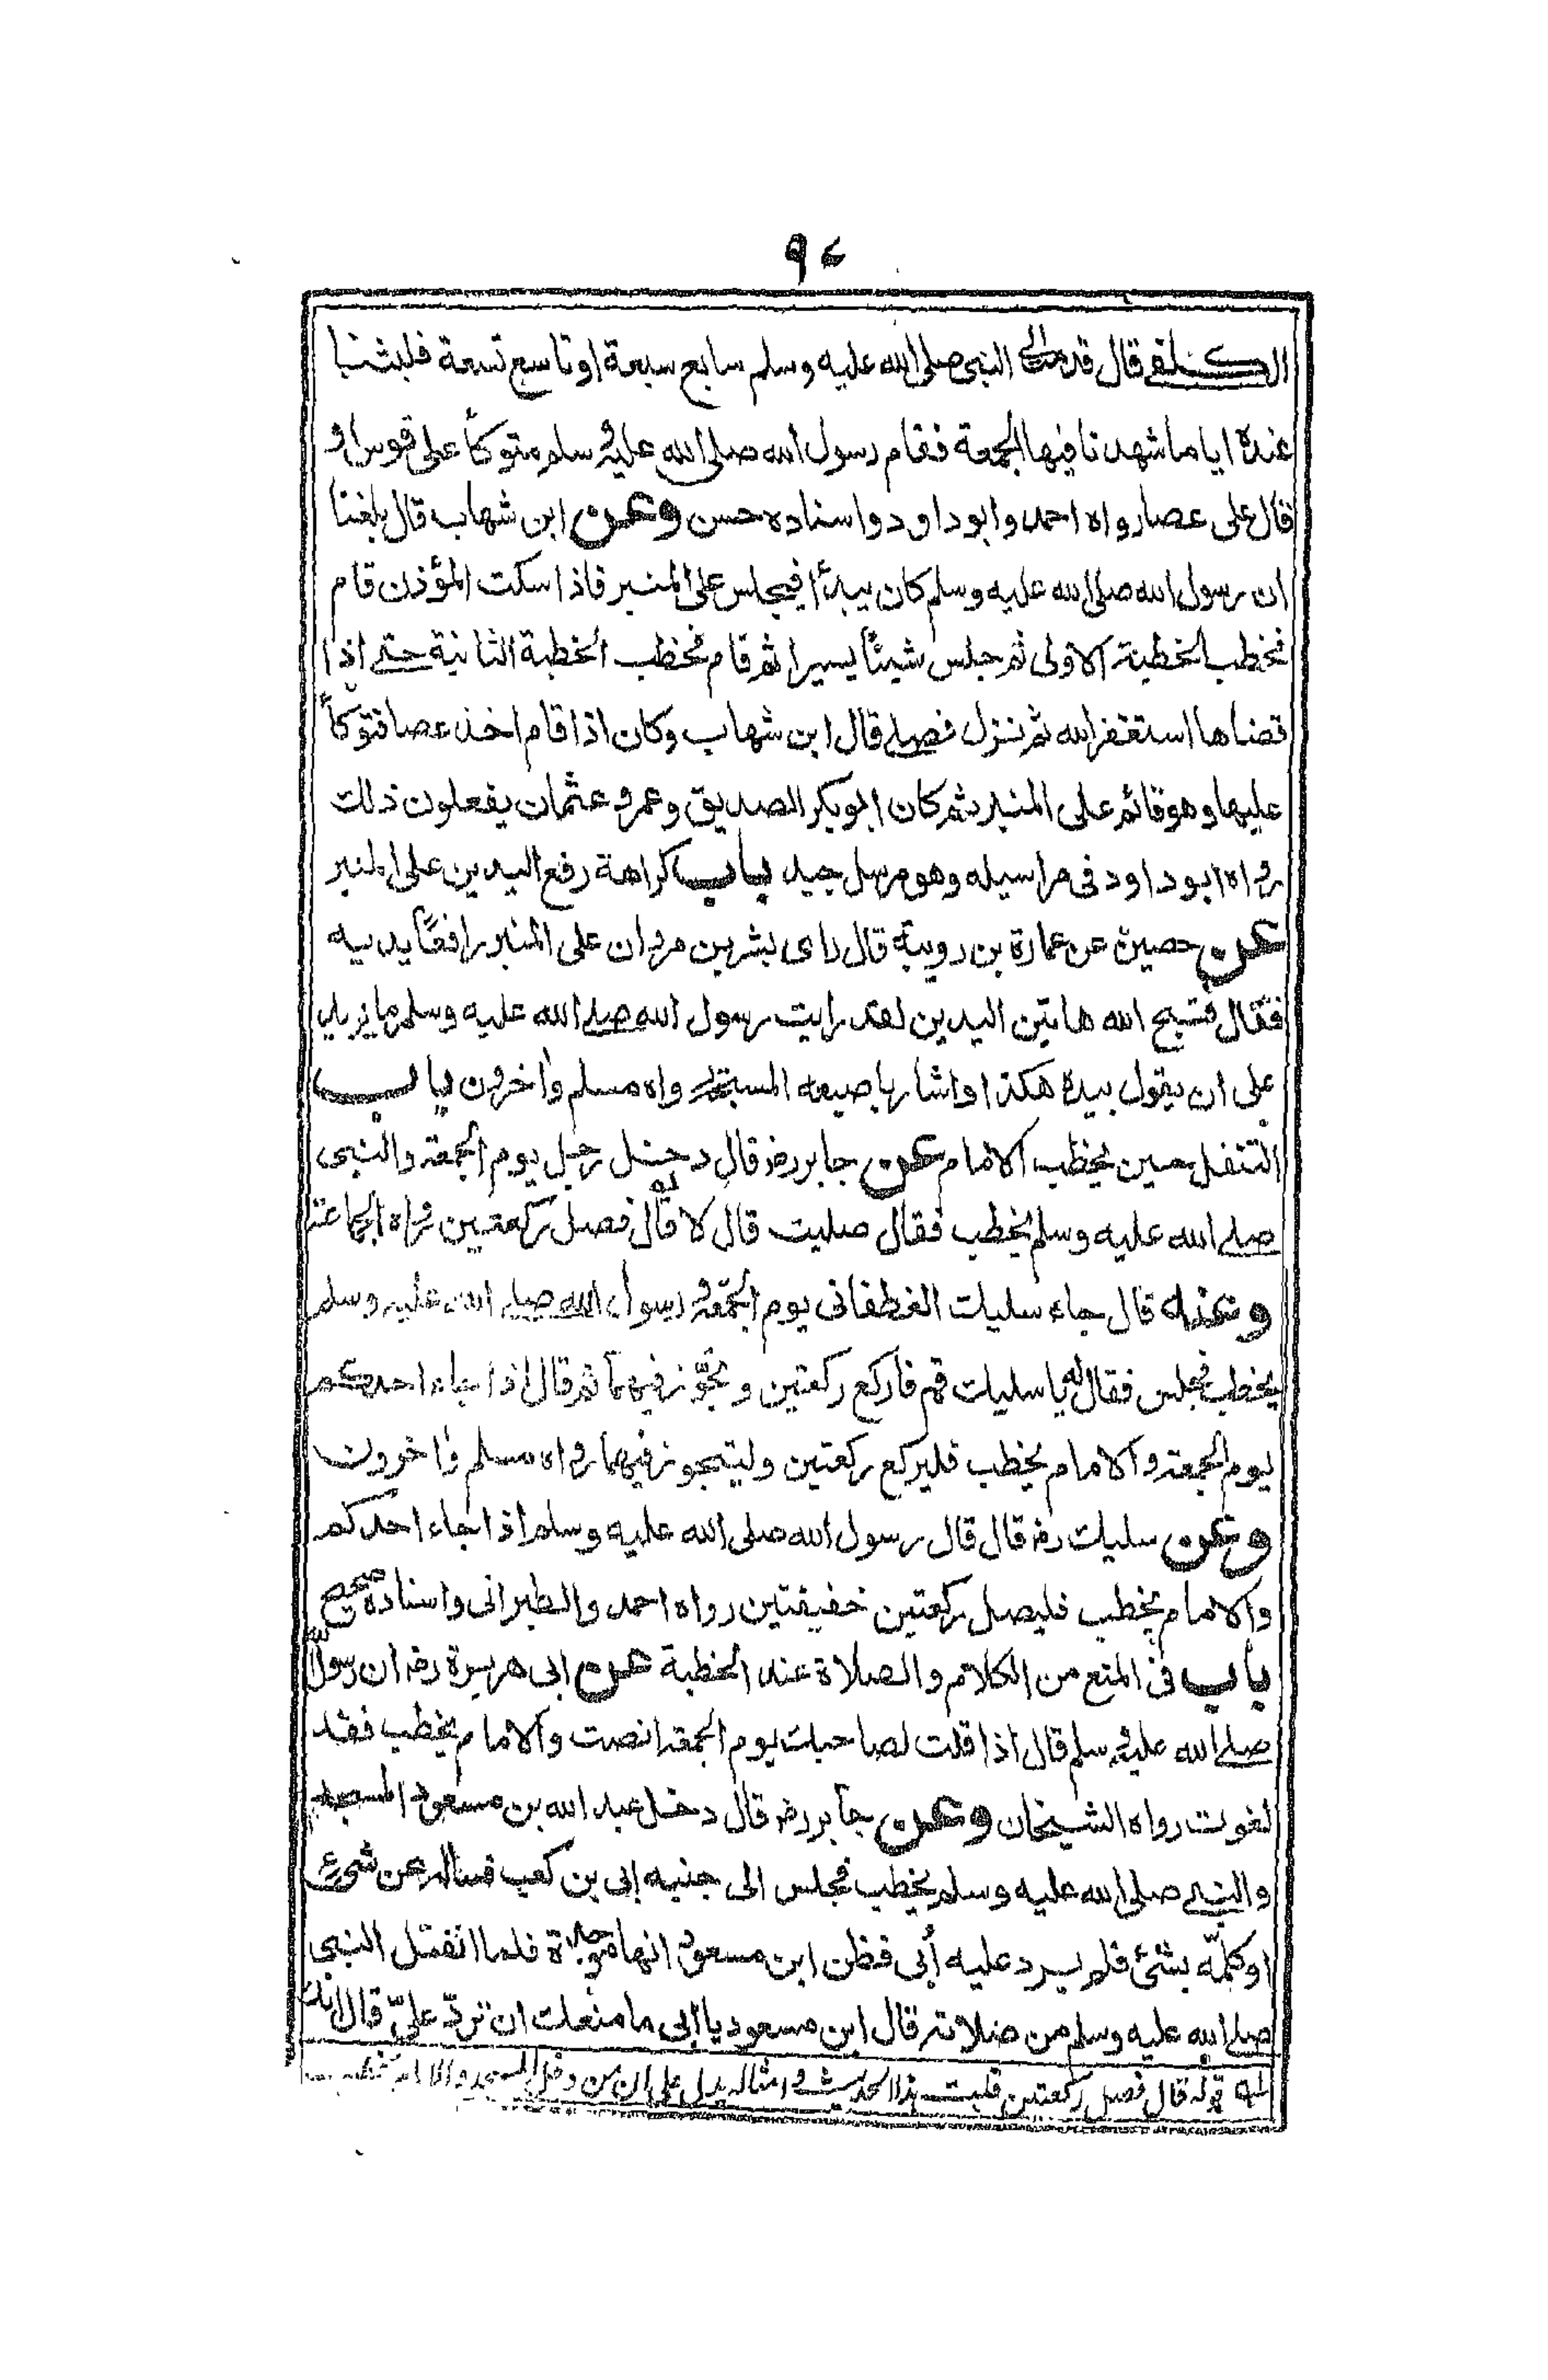 ٩٤
الكلفي قال قدمت الى النبى صلى الله عليه وسلم سابع سبعة او تاسع تسعة فلبثنا
عنده اياما شهدنا فيها الجمعة فقام رسول الله صلى الله عليه وسلم متوكأ على قوس او
قال على عصا رواه احمد وابوداود واسناده حسن وعن ابن شهاب قال بلغنا
ان رسول الله صلى الله عليه وسلم كان يبدأ فيجلس على المنبر فاذا سكت المؤذن قام
فخطب الخطبة الاولى ثم جلس شيئًا يسيرا ثم قام فخطب الخطبة الثانية حتى اذا
قضاها استغفر الله ثم نزل فصلى قال ابن شهاب وكان اذا قام اخذ عصا فتوكأ
عليها وهو قائم على المنبر ثم كان ابوبكر الصديق وعمر وعثمان يفعلون ذلك
رواه ابوداود فى مراسيله وهو مرسل جيد باب كراهة رفع اليدين على المنبر
عن حصين عن عمارة بن رويبة قال راى بشر بن مروان على المنبر رافعًا يديه
فقال قبح الله هاتين اليدين لقد رايت رسول الله صلى الله عليه وسلم ما يزيد
على ان يقول بيده هكذا واشار باصبعه المسبحة رواه مسلم وآخرون باب
التنفل حين يخطب الامام عن جابر رض قال دخل رجل يوم الجمعة والنبى
صلى الله عليه وسلم يخطب فقال صليت قال لا قال فصل ركعتين رواه الجماعة
وعنه قال جاء سليك الغطفانى يوم الجمعة ورسول الله صلى الله عليه وسلم
يخطب فجلس فقال له يا سليك قم فاركع ركعتين وتجوّز فيهما ثم قال اذا جاء احدكم
يوم الجمعة والامام يخطب فليركع ركعتين وليتجوز فيهما رواه مسلم وآخرون
وعن سليك رض قال قال رسول الله صلى الله عليه وسلم اذا جاء احدكم
والامام يخطب فليصل ركعتين خفيفتين رواه احمد والطبرانى واسناده صحيح
باب فى المنع من الكلام والصلاة عند الخطبة عن ابى هريرة رض ان رسول الله
صلى الله عليه وسلم قال اذا قلت لصاحبك يوم الجمعة انصت والامام يخطب فقد
لغوت رواه الشيخان وعن جابر رض قال دخل عبد الله بن مسعود المسجد
والنبى صلى الله عليه وسلم يخطب فجلس الى جنبه ابى بن كعب فساله عن شىء
او كلمّه بشئ فلم يرد عليه أبى فظن ابن مسعود انها موجدة فلما انفتل النبى
صلى الله عليه وسلم من صلاته قال ابن مسعود يا ابى ما منعك ان تردّ علىّ قال انك
له قوله قال فصل ركعتين قلت هذا الحديث وامثاله يدل على ان من دخل المسجد والامام يخطب